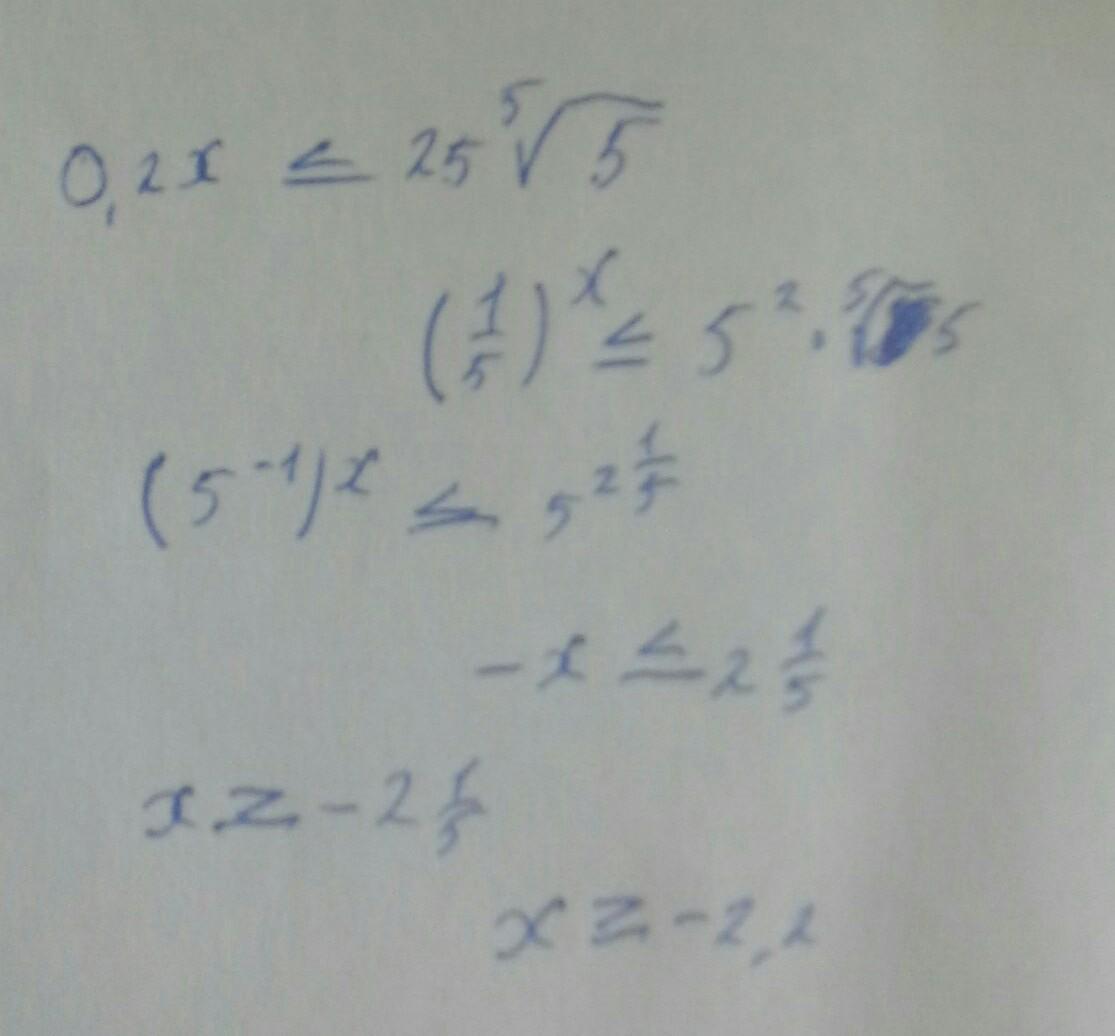 0,2x ≤ 25 ⁵√5
(1/5)^x ≤ 5² · ⁵√5
(5⁻¹)^x ≤ 5^(2 1/5)
-x ≤ 2 1/5
x ≥ -2 1/5
x ≥ -2,2